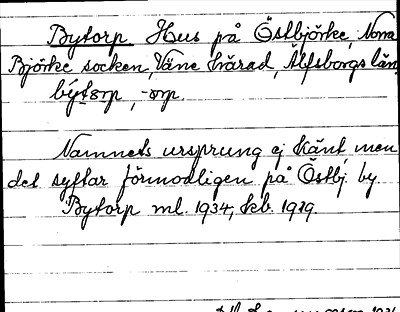 Bytorp Hus på Östbjörke, Norra
Björke socken, Väne härad, Älfsborgs län.
býtorp, -orp.
Namnets ursprung ej känt, men
det syftar förmodligen på Östbj. by
Bytorp ml. 1934, Jeb. 1919.